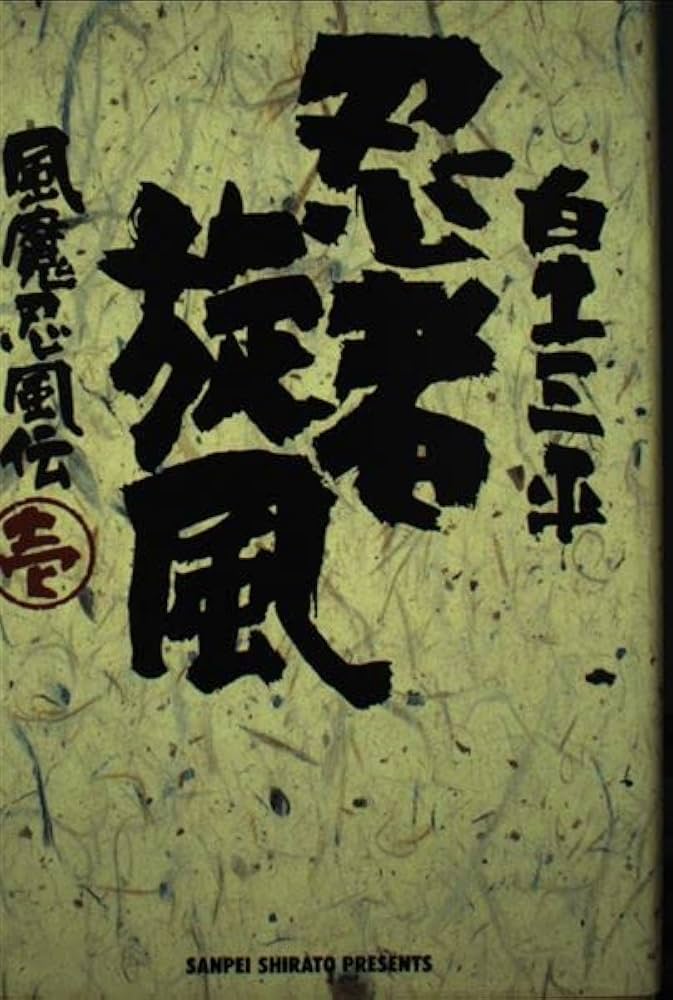 白土三平
忍者
旋風
風魔忍風伝
壱
SANPEI SHIRATO PRESENTS